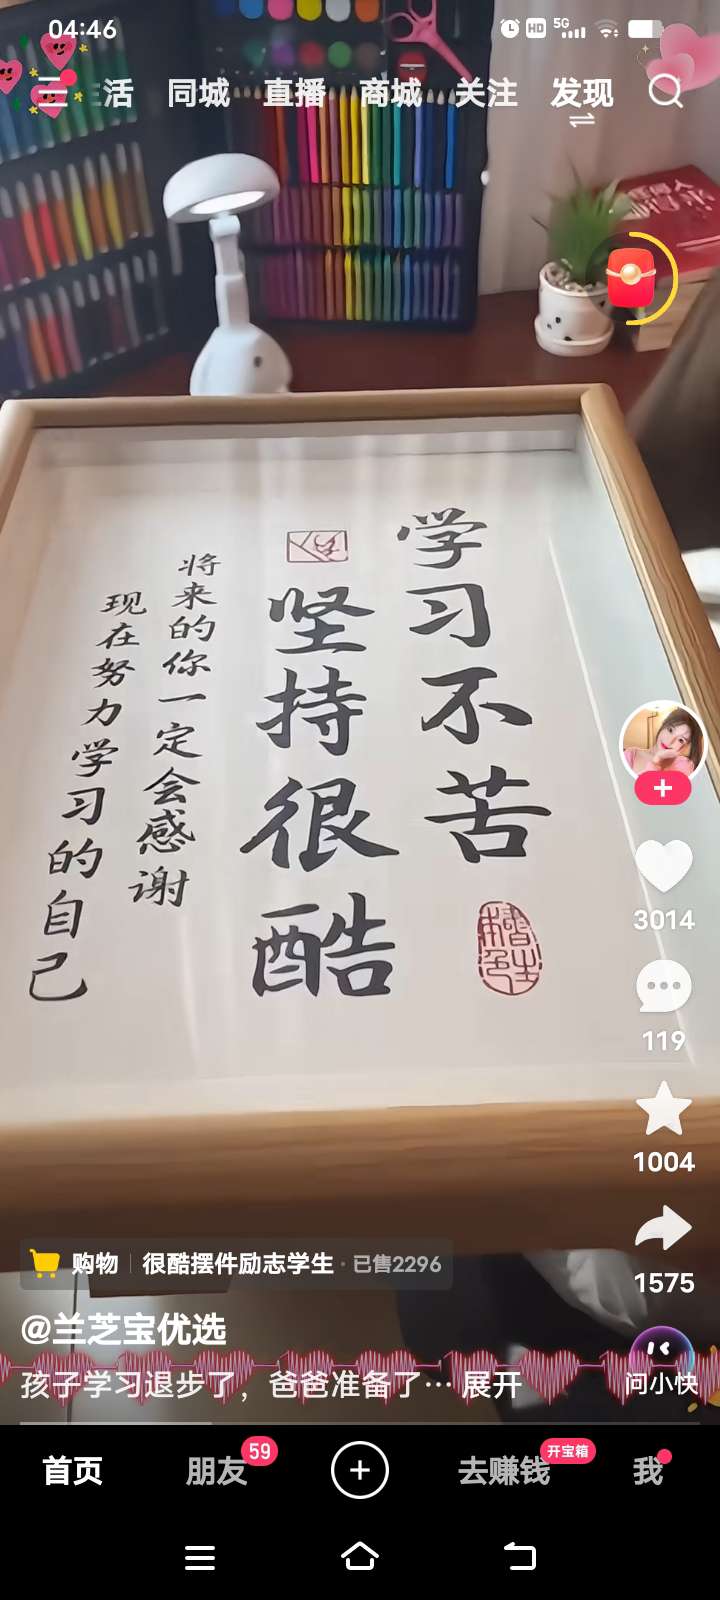 04:46
HD
5G
活 同城 直播 商城 关注 发现
学习不苦
坚持很酷
将来的你一定会感谢
现在努力学习的自己
3014
119
1004
1575
购物 很酷摆件励志学生 · 已售2296
@兰芝宝优选
孩子学习退步了，爸爸准备了… 展开
问小快
首页 朋友 59 去赚钱 开宝箱 我